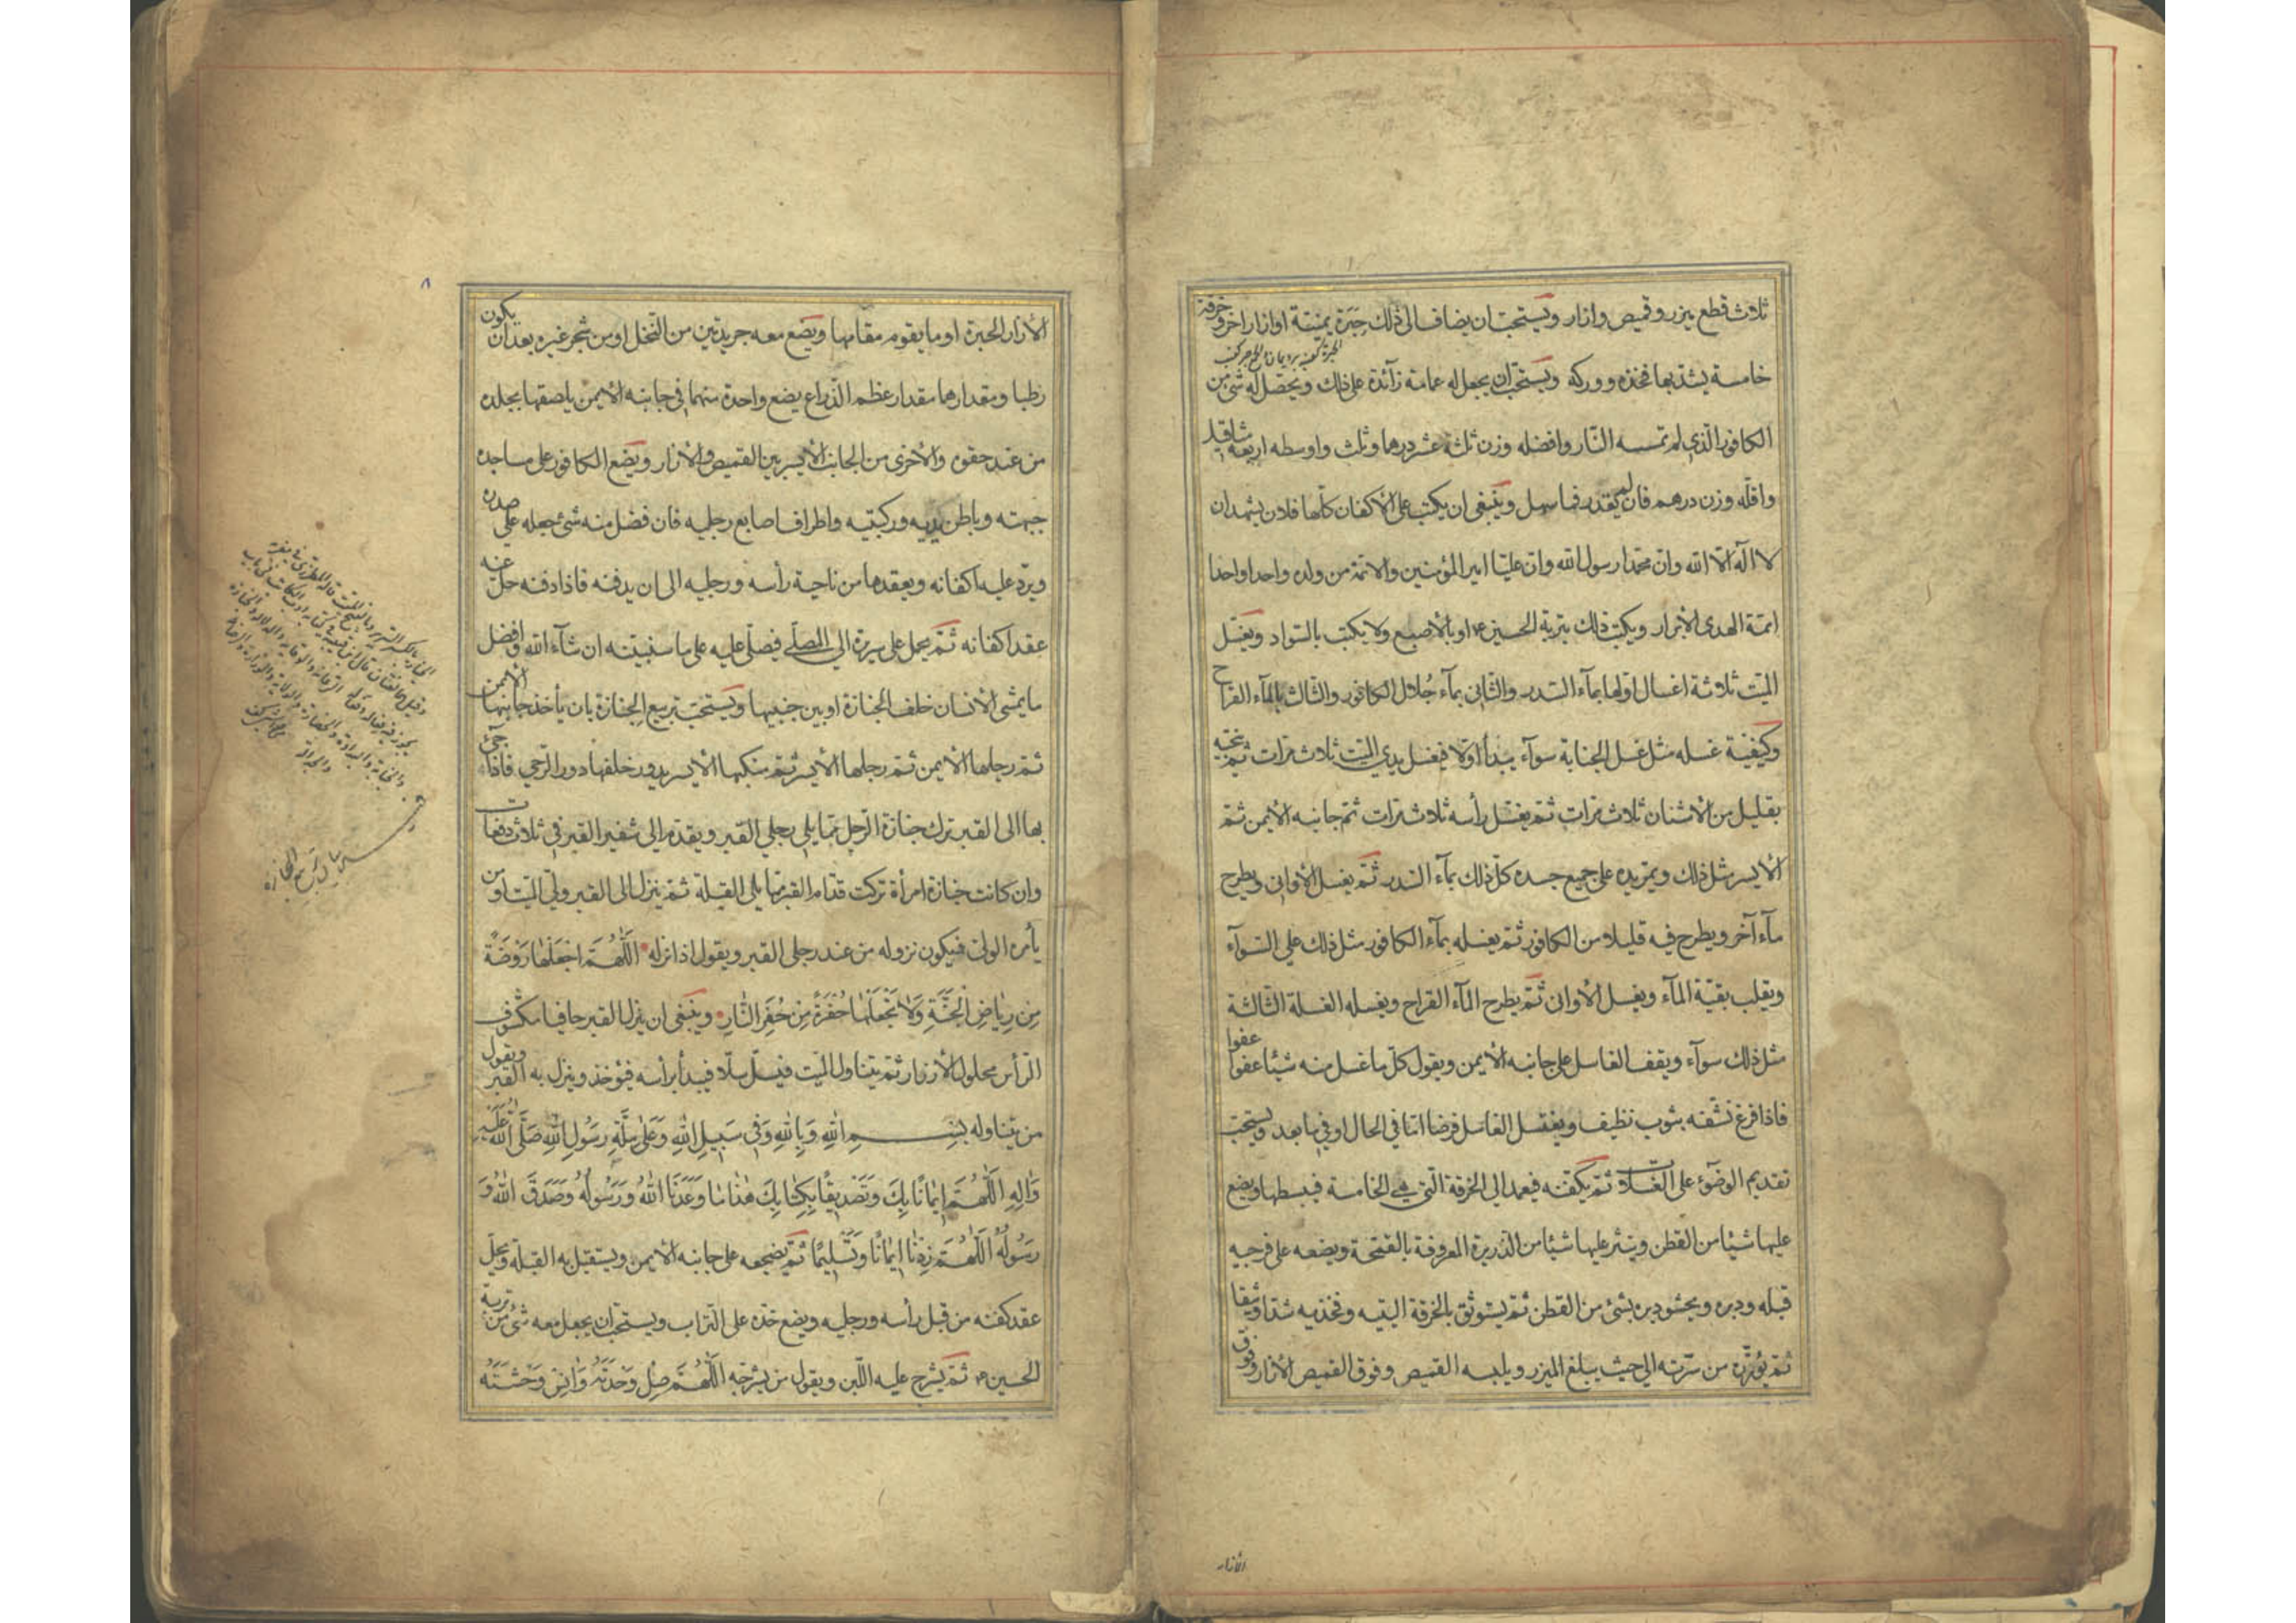 ثلاث قطع ميزر وقميص وازار ويستحب ان يضاف الى ذلك حبرة يمنية او ازار اخر وخرقة
خامسة يشد بها فخذه ووركه ويستحب ان يجعل له عمامة زآئدة على ذلك ويحصل له شئ من
الكافور الذي لم تمسه النار وافضله وزن ثلثة عشر درهما وثلث واوسطه اربعة مثاقيل
واقله وزن درهم فان لم يقدر فما سهل وينبغى ان يكتب على الاكفان كلها فلان يشهد ان
لا اله الا الله وان محمدا رسول الله وان عليا امير المؤمنين والائمة من ولده واحدا واحدا
ائمة الهدى الابرار ويكتب ذلك بتربة الحسين ع او بالاصبع ولا يكتب بالسواد ويغسل
الميت ثلاثة اغسال اولها بمآء السدر والثانى بمآء جلال الكافور والثالث بالمآء القراح
وكيفية غسله مثل غسل الجنابة سوآء يبدأ اولا فيغسل يدي الميت ثلاث مرات ثم ينجيه
بقليل من الاشنان ثلاث مرات ثم يغسل رأسه ثلاث مرات ثم جانبه الايمن ثم
الايسر مثل ذلك ويمر يده على جميع جسده كل ذلك بمآء السدر ثم يغسل الاوانى ويطرح
مآء آخر ويطرح فيه قليلا من الكافور ثم يغسله بمآء الكافور مثل ذلك على السوآء
ويقلب بقية المآء ويغسل الاوانى ثم يطرح المآء القراح ويغسله الغسلة الثالثة
مثل ذلك سوآء ويقف الغاسل على جانبه الايمن ويقول كل ما غسل منه شيئا عفوا عفوا
فاذا فرغ نشفه بثوب نظيف ويغتسل الغاسل فرضا اما فى الحال او فيما بعد ويستحب
تقديم الوضوء على الغسلات ثم يكفنه فيعمد الى الخرقة التى هى الخامسة فيبسطها ويضع
عليها شيئا من القطن وينثر عليها شيئا من الذريرة المعروفة بالقمحة ويضعه على فرجيه
قبله ودبره ويحشو دبره بشئ من القطن ثم يستوثق بالخرقة اليتيه وفخذيه شدا وثيقا
ثم يؤزره من سرته الى حيث يبلغ الميزر ويلبسه القميص وفوق القميص الازار وفوق
الازار
الازار الحبرة او ما يقوم مقامها ويضع معه جريدتين من النخل او من شجر غيره بعد ان يكون
رطبا ومقدارها مقدار عظم الذراع يضع واحدة منهما فى جانبه الايمن يلصقها بجلده
من عند حقوه والاخرى من الجانب الايسر بين القميص والازار ويضع الكافور على مساجده
جبهته وباطن يديه وركبتيه واطراف اصابع رجليه فان فضل منه شئ جعله على صدره
ويرد عليه اكفانه ويعقدها من ناحية رأسه ورجليه الى ان يدفنه فاذا دفنه حل عنه
عقد اكفانه ثم يحمل على سريره الى المصلى فيصلى عليه على ما سنبينه ان شآء الله وافضل
ما يمشى الانسان خلف الجنازة او بين جنبيها ويستحب تربيع الجنازة بان يأخذ جانبها الايمن
ثم رجلها الايمن ثم رجلها الايسر ثم منكبها الايسر يدور خلفها دور الرحى فاذا جئ
بها الى القبر ترك جنازة الرجل مما يلى رجلى القبر ويقدم الى شفير القبر فى ثلاث دفعات
وان كانت جنازة امرأة تركت قدام القبر مما يلى القبلة ثم ينزل الى القبر ولى الميت او من
يأمره الولى فيكون نزوله من عند رجلى القبر ويقول اذا نزله اللهم اجعلها روضة
من رياض الجنة ولا تجعلها حفرة من حفر النار وينبغى ان ينزل القبر حافيا مكشوف
الرأس محلول الازرار ثم يتناول الميت فيسل سلا فيبدأ برأسه فيؤخذ وينزل به القبر ويقول
من يتناوله بسم الله وبالله وفى سبيل الله وعلى ملة رسول الله صلى الله عليه
واله اللهم ايمانا بك وتصديقا بكتابك هذا ما وعدنا الله ورسوله وصدق الله و
رسوله اللهم زدنا ايمانا وتسليما ثم يضجعه على جانبه الايمن ويستقبل به القبلة ويحل
عقد كفنه من قبل رأسه ورجليه ويضع خده على التراب ويستحب ان يجعل معه شئ من تربة
الحسين ع ثم يشرج عليه اللبن ويقول من يشرجه اللهم صل وحدته وانس وحشته
٨